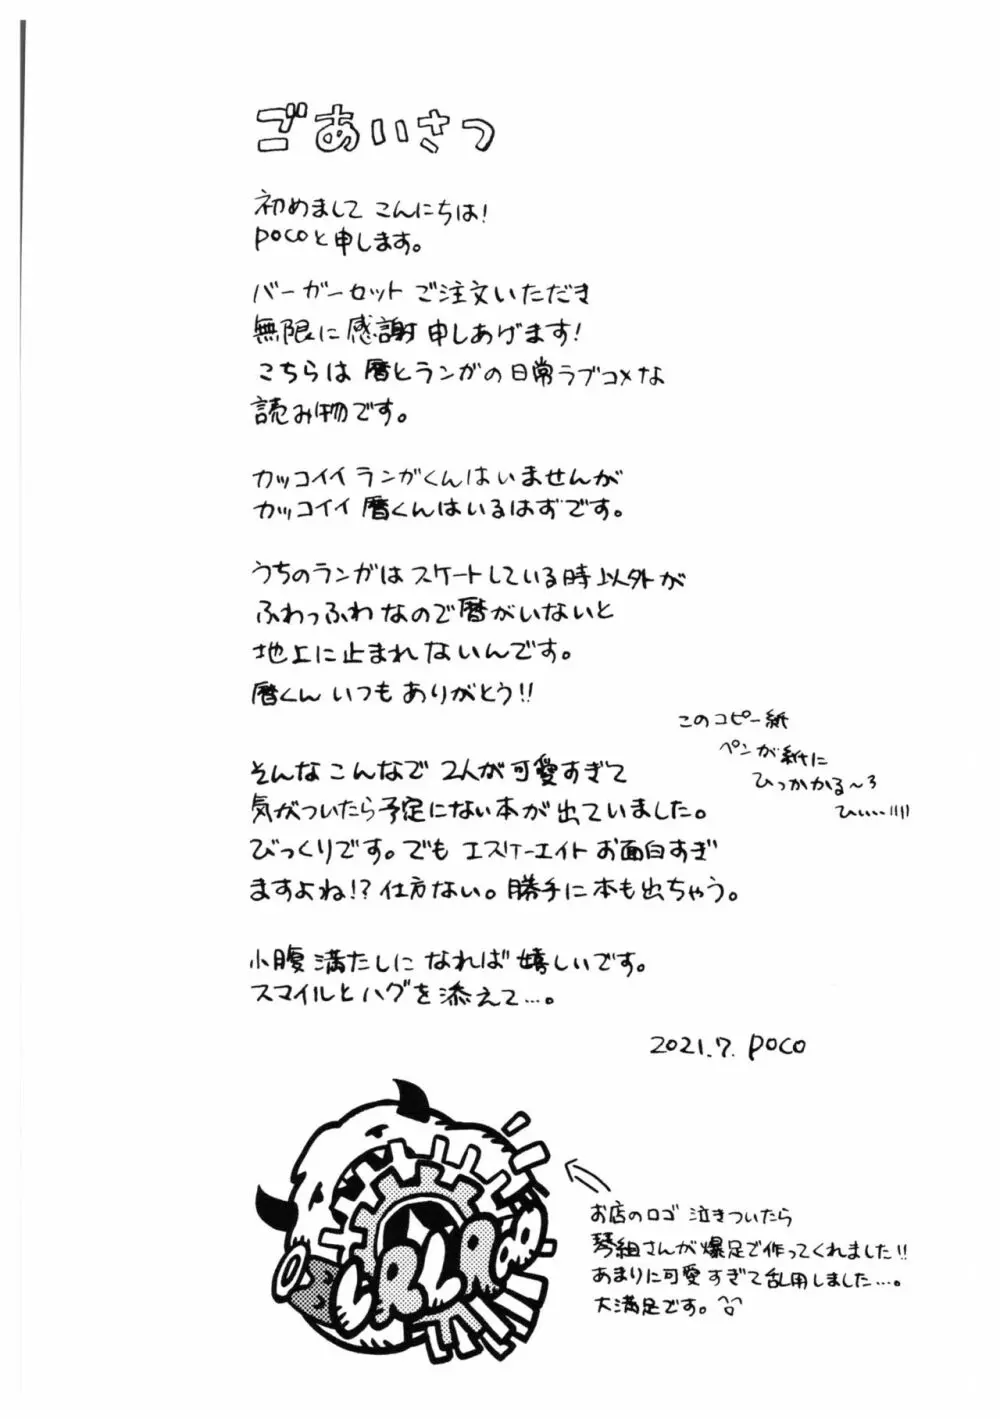 ごあいさつ
初めまして こんにちは!
pocoと申します。
バーガーセット ご注文いただき
無限に感謝申しあげます!
こちらは 暦とランガの日常ラブコメな
読み物です。
カッコイイ ランガくんはいませんが
カッコイイ 暦くんはいるはずです。
うちのランガは スケートしている時以外が
ふわっふわなので暦がいないと
地上に止まれないんです。
暦くん いつも ありがとう!!
このコピー紙
ペンが紙に
ひっかかる〜3
ひぃぃ…
そんな こんなで 2人が可愛すぎて
気がついたら予定にない本が出ていました。
びっくりです。でも エスケーエイト お面白すぎ
ますよね!? 仕方ない。勝手に本も出ちゃう。
小腹満たしに なれば 嬉しいです。
スマイルとハグを添えて…。
2021.7. poco
お店のロゴ 泣きついたら
琴組さんが爆足で作ってくれました!!
あまりに可愛すぎて乱用しました…。
大満足です。